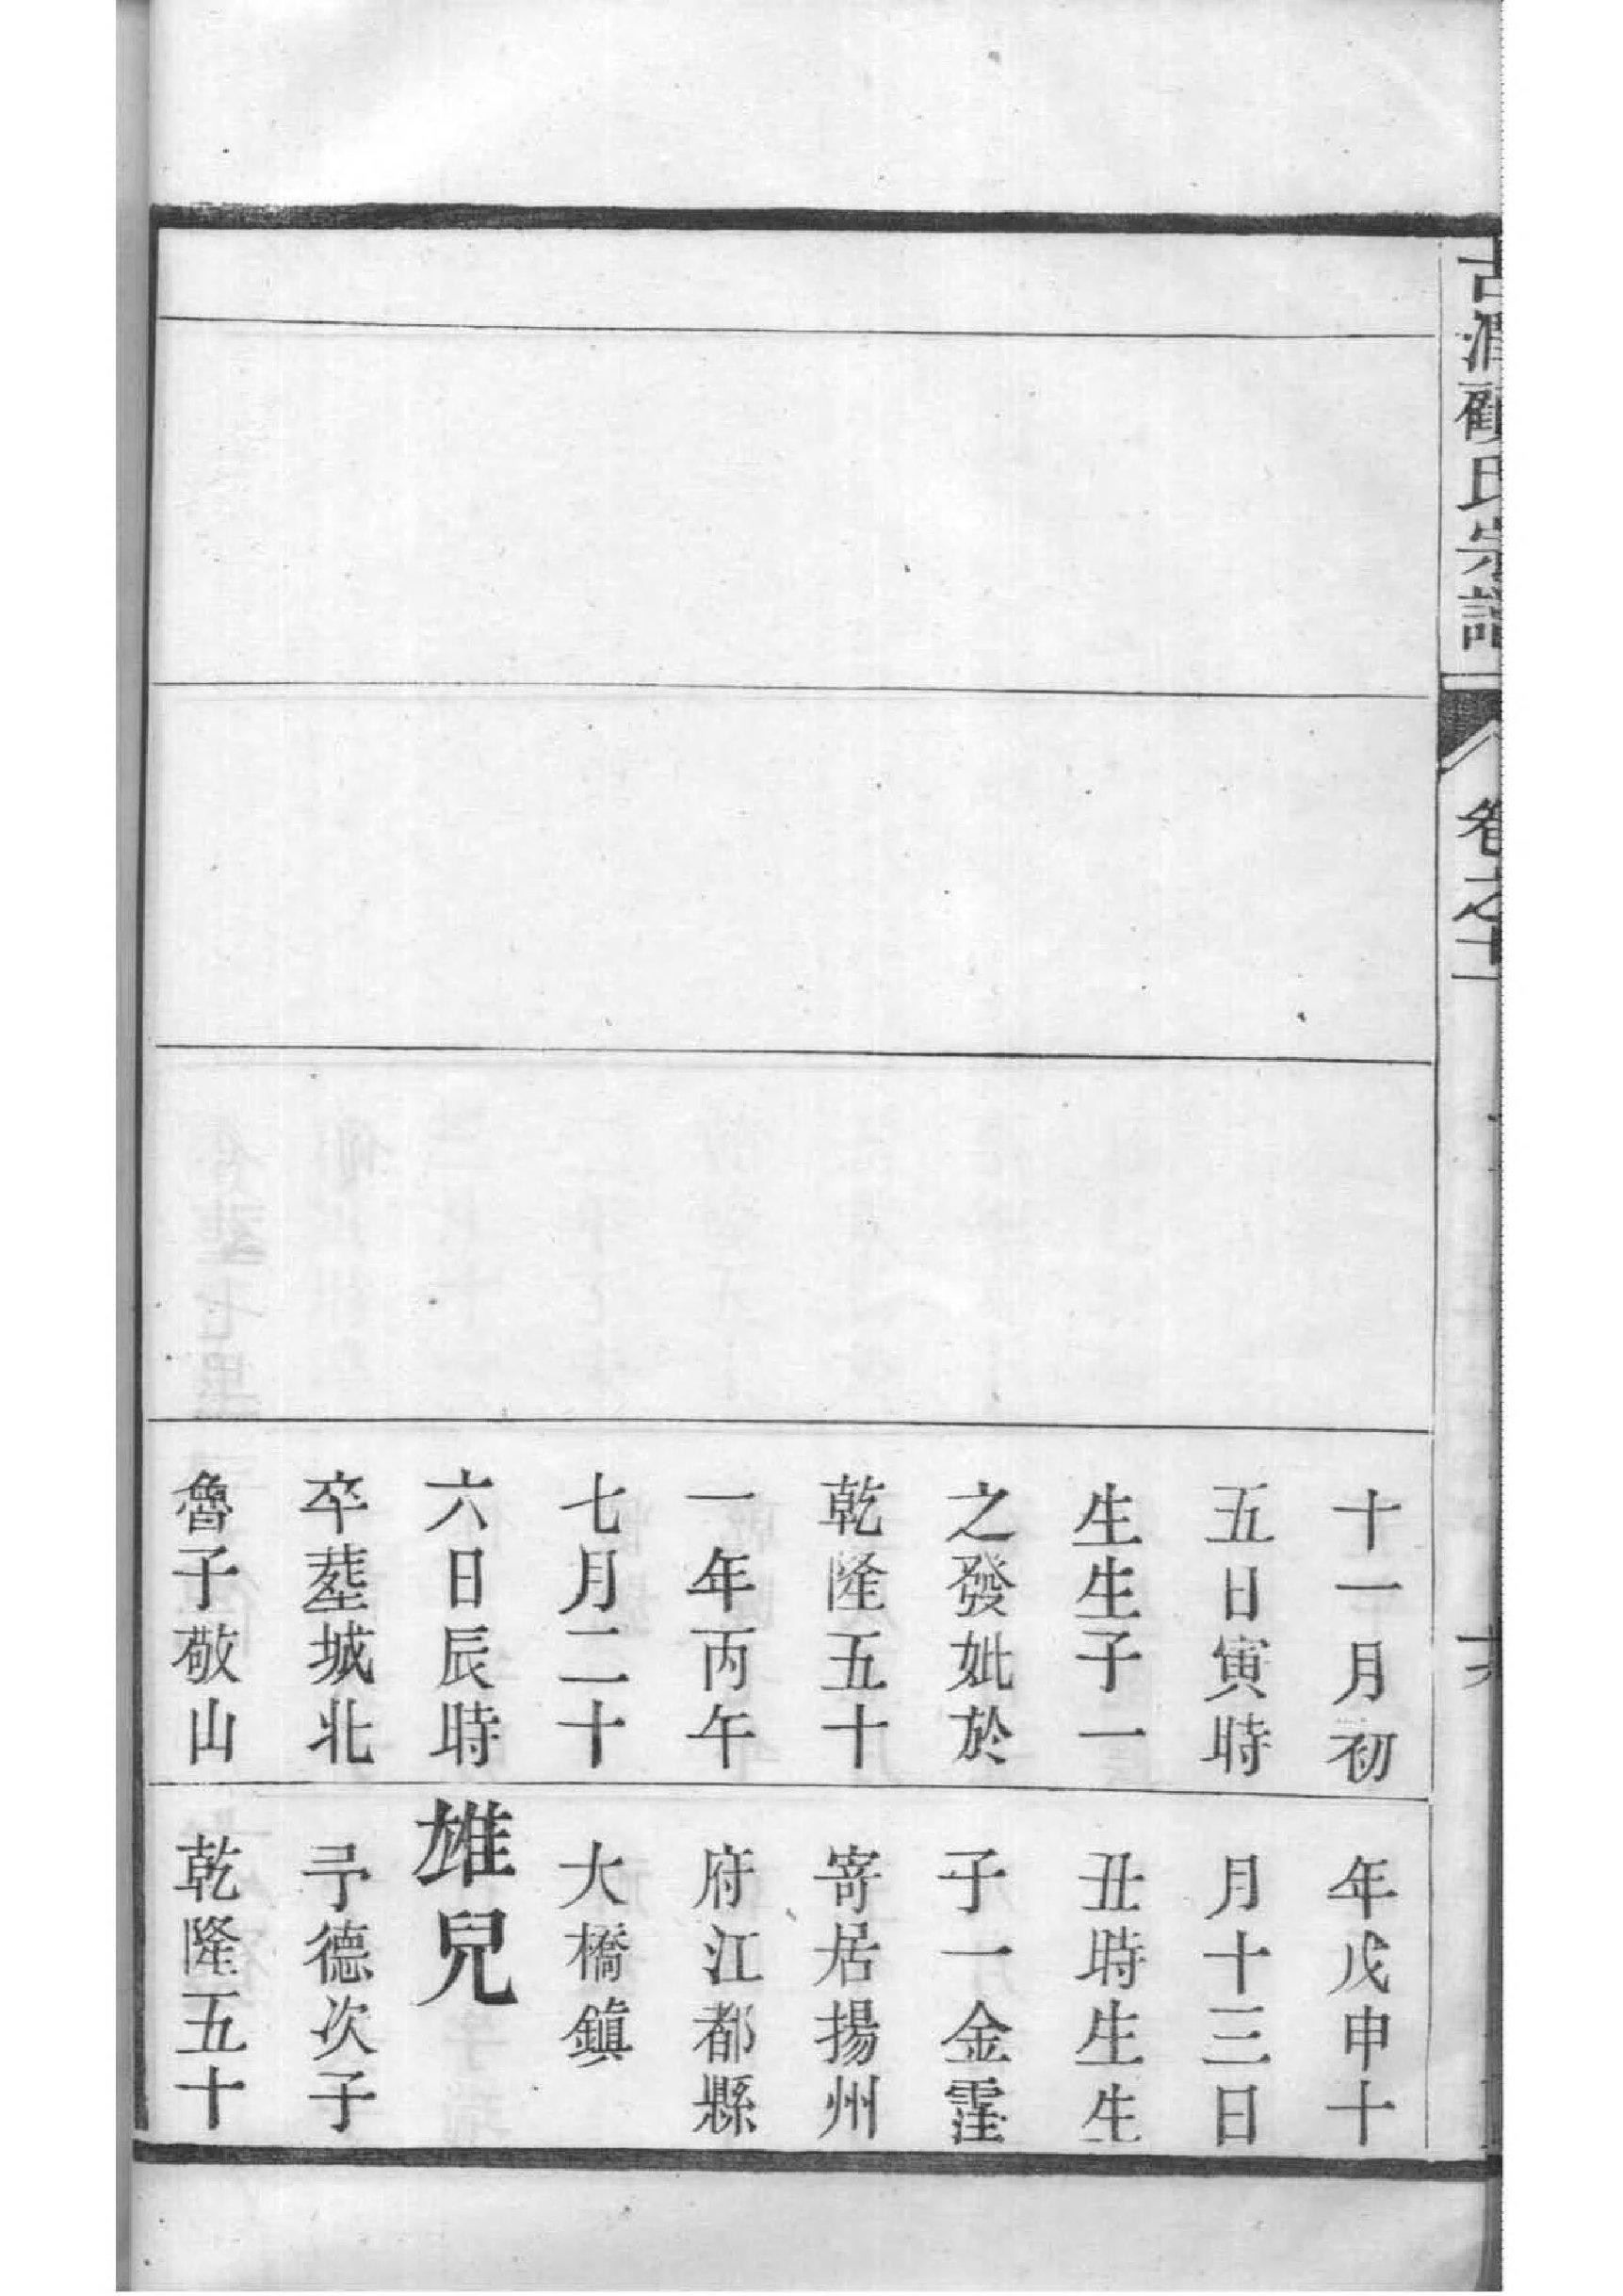 古潤顧氏宗譜
卷之十一
十六
十一月初
五日寅時
生生子一
之發妣於
乾隆五十
一年丙午
七月二十
六日辰時
卒塟城北
魯子敬山
年戊申十
月十三日
丑時生生
子一金霔
寄居揚州
府江都縣
大橋鎮
雄兒
予德次子
乾隆五十